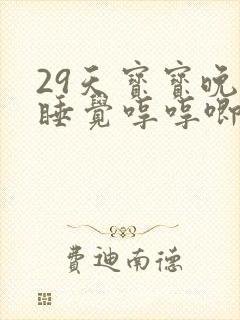 29天寶寶晚
睡覺哼哼唧
費迪南德